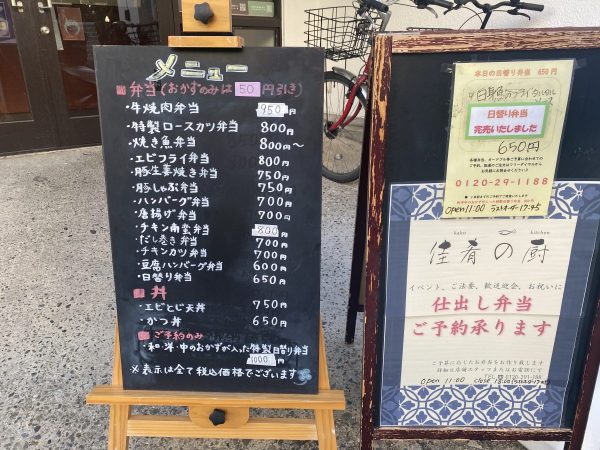 メニュー
弁当(おかずのみは50円引き)
・牛焼肉弁当 950円
・特製ロースカツ弁当 800円
・焼き魚弁当 800円～
・エビフライ弁当 800円
・豚生姜焼き弁当 750円
・豚しゃぶ弁当 750円
・ハンバーグ弁当 700円
・唐揚げ弁当 700円
・チキン南蛮弁当 800円
・だし巻き弁当 700円
・チキンカツ弁当 700円
・豆腐ハンバーグ弁当 600円
・日替り弁当 650円
丼
・エビとじ天丼 750円
・かつ丼 650円
ご予約のみ
・和・洋・中のおかずが入った特製日替り弁当
1000円
※表示は全て税込価格でございます
本日の日替り弁当 650円
日替り弁当
完売いたしました
650円
0120-29-1188
open 11:00 ラストオーダー17:45
kitchen
佳肴の厨
イベント、ご法要、歓送迎会、お祝いに
仕出し弁当
ご予約承ります
ご予算に応じたお弁当をお作り致します
詳細は店舗スタッフまたはお電話にて
open 11:00 close 18:00